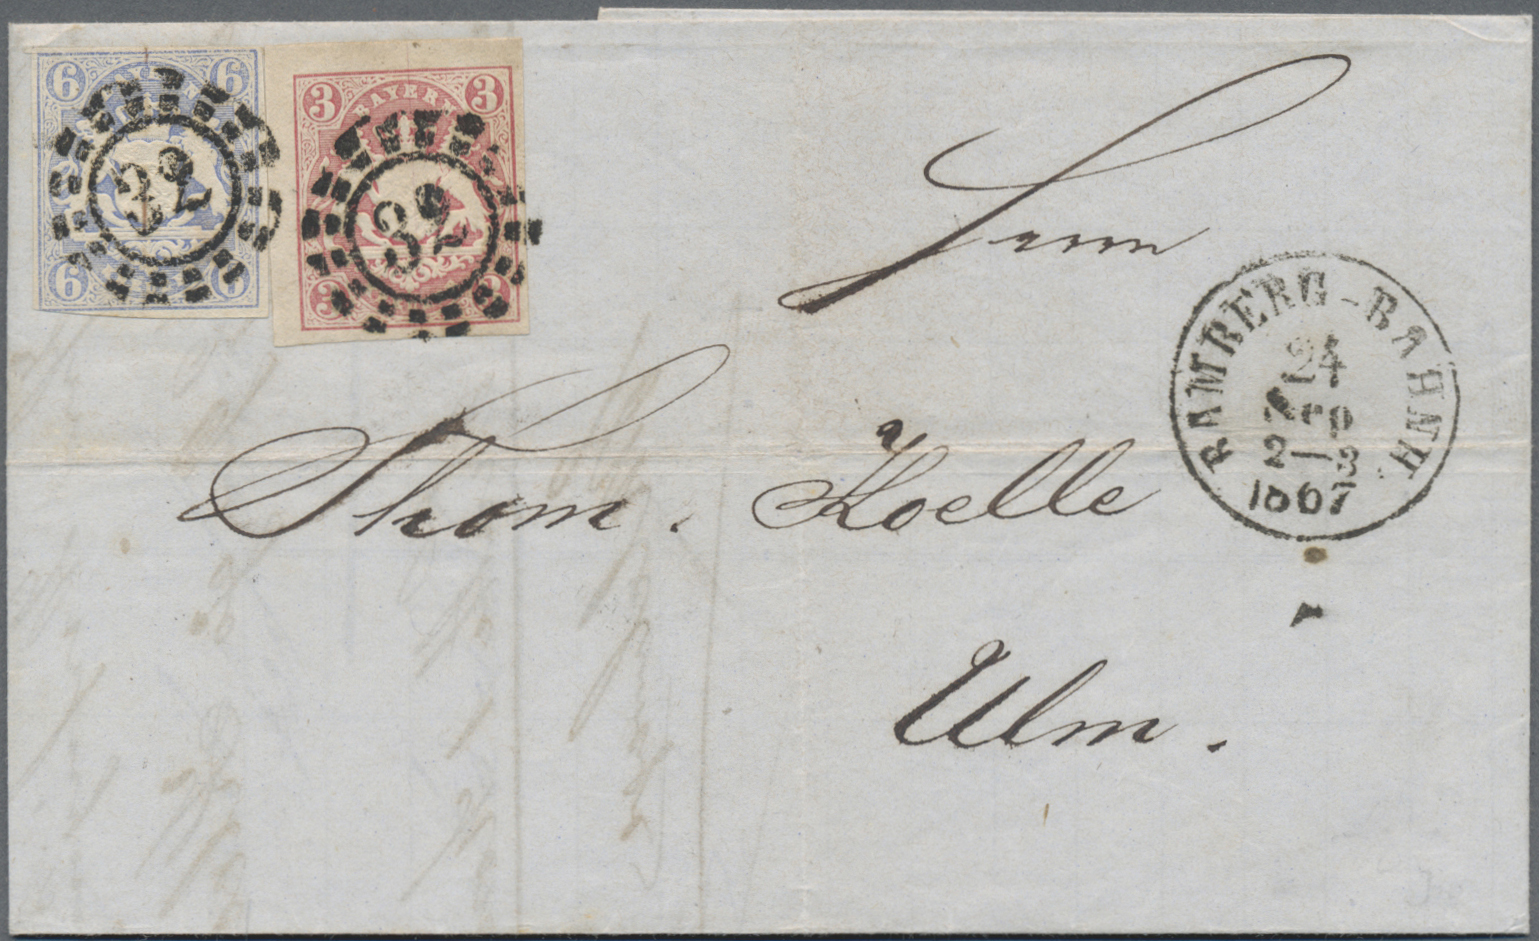 6 6
3 BAYERN 3
32
32
6 6
3 3
Herrn
BAMBERG-BAHNH.
24
2—3
1867
Thom. Koelle
Ulm.